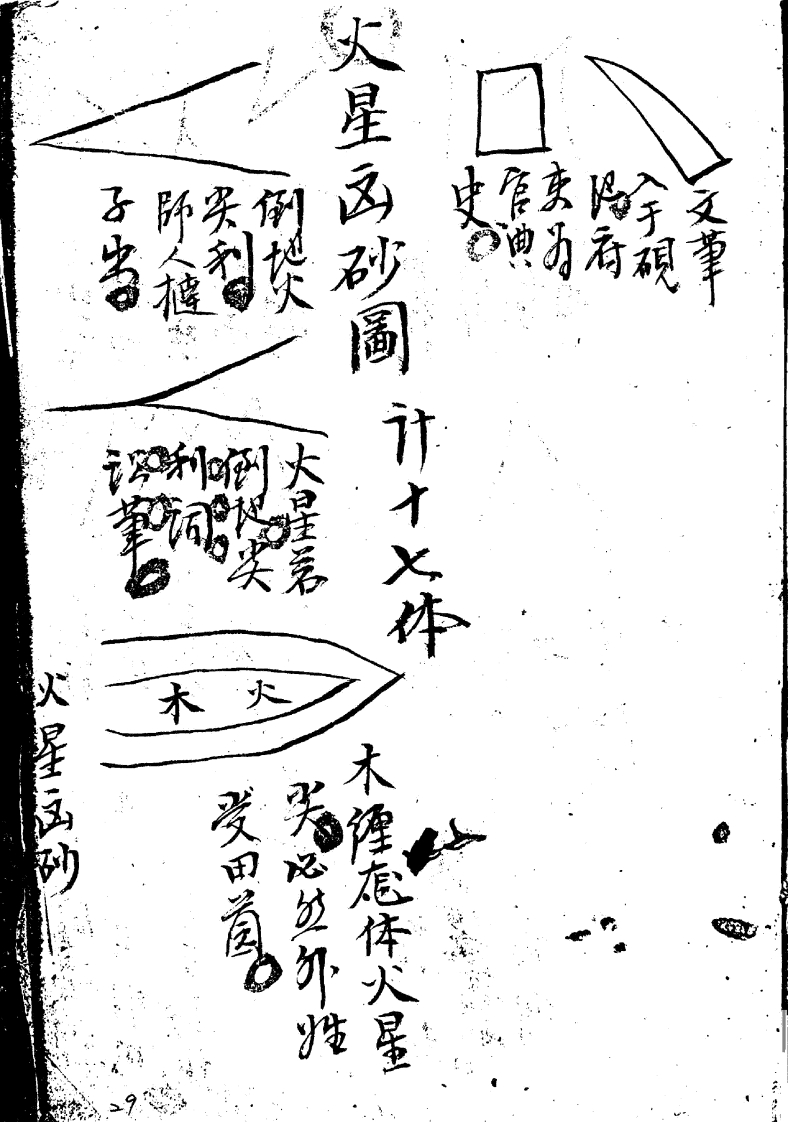 文筆
入于硯
陽府
吏為
官典
史
火星凶砂圖
計十七体
倒地火
尖利
師人撻
子出
火星若
倒地尖
利詞
訟筆
火
木
木纏惹体火星
尖必然外姓
受田園
火星凶砂
29